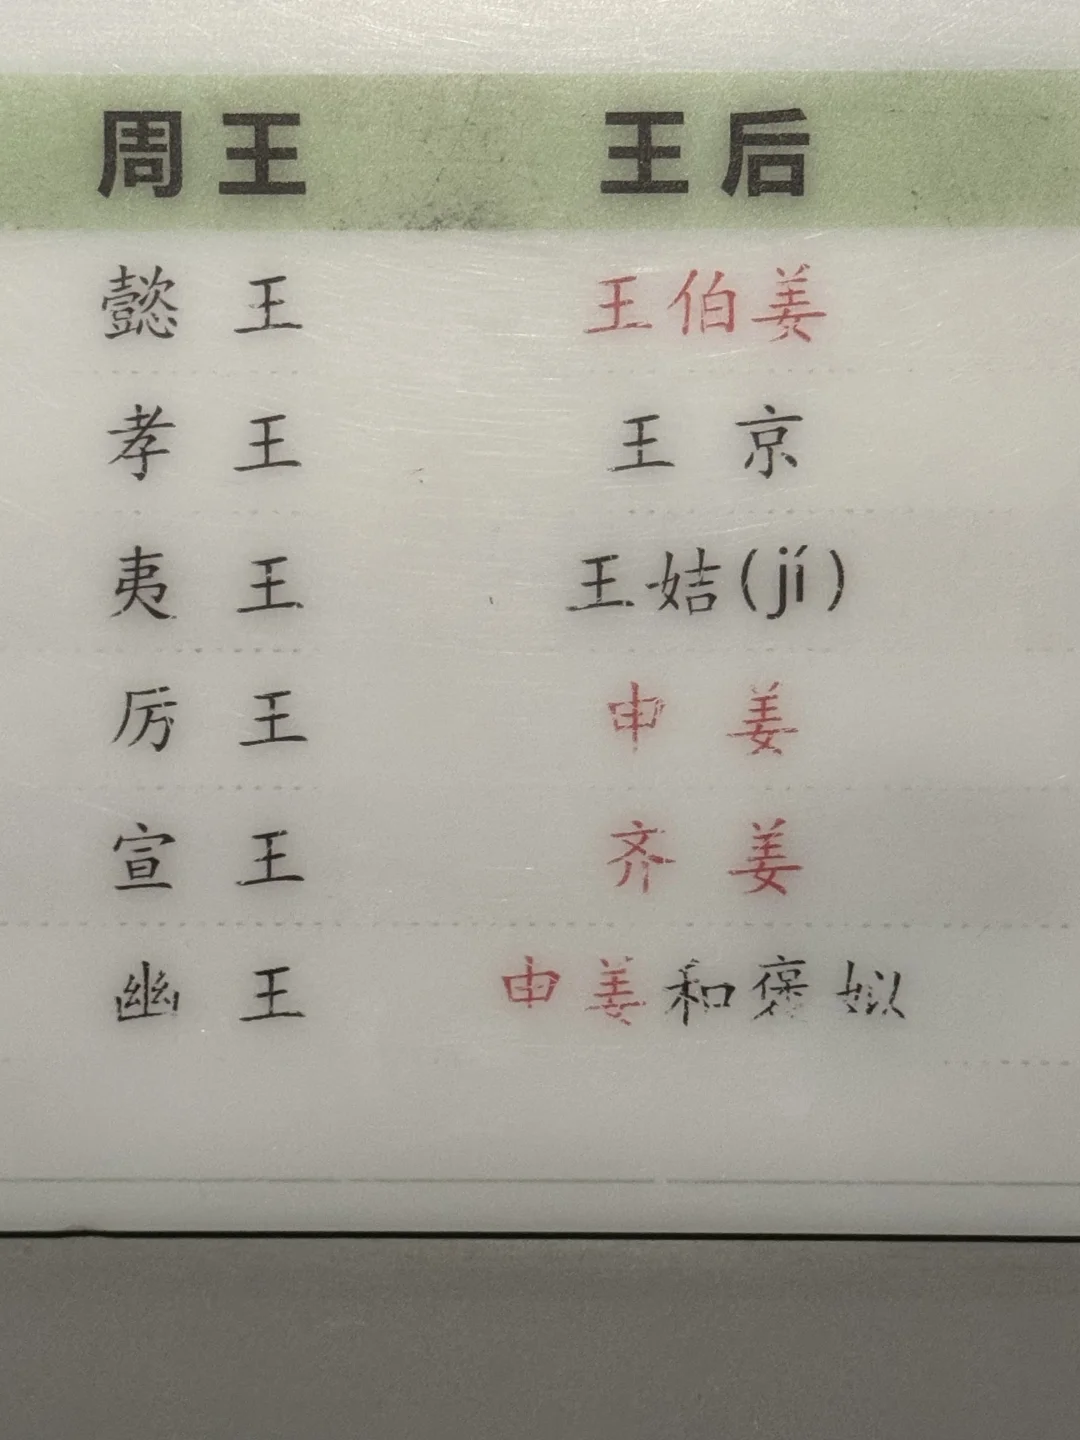 周王 王后
懿王 王伯姜
孝王 王京
夷王 王姞(jí)
厉王 申姜
宣王 齐姜
幽王 申姜和褒姒